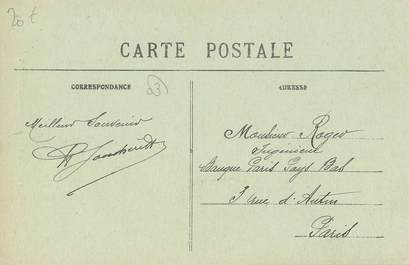 20 t
CARTE POSTALE
CORRESPONDANCE
ADRESSE
83
Meilleur Souvenir
Monsieur Roger
Ingénieur
Banque Paris Pays Bas
3 rue d'Antin
Paris